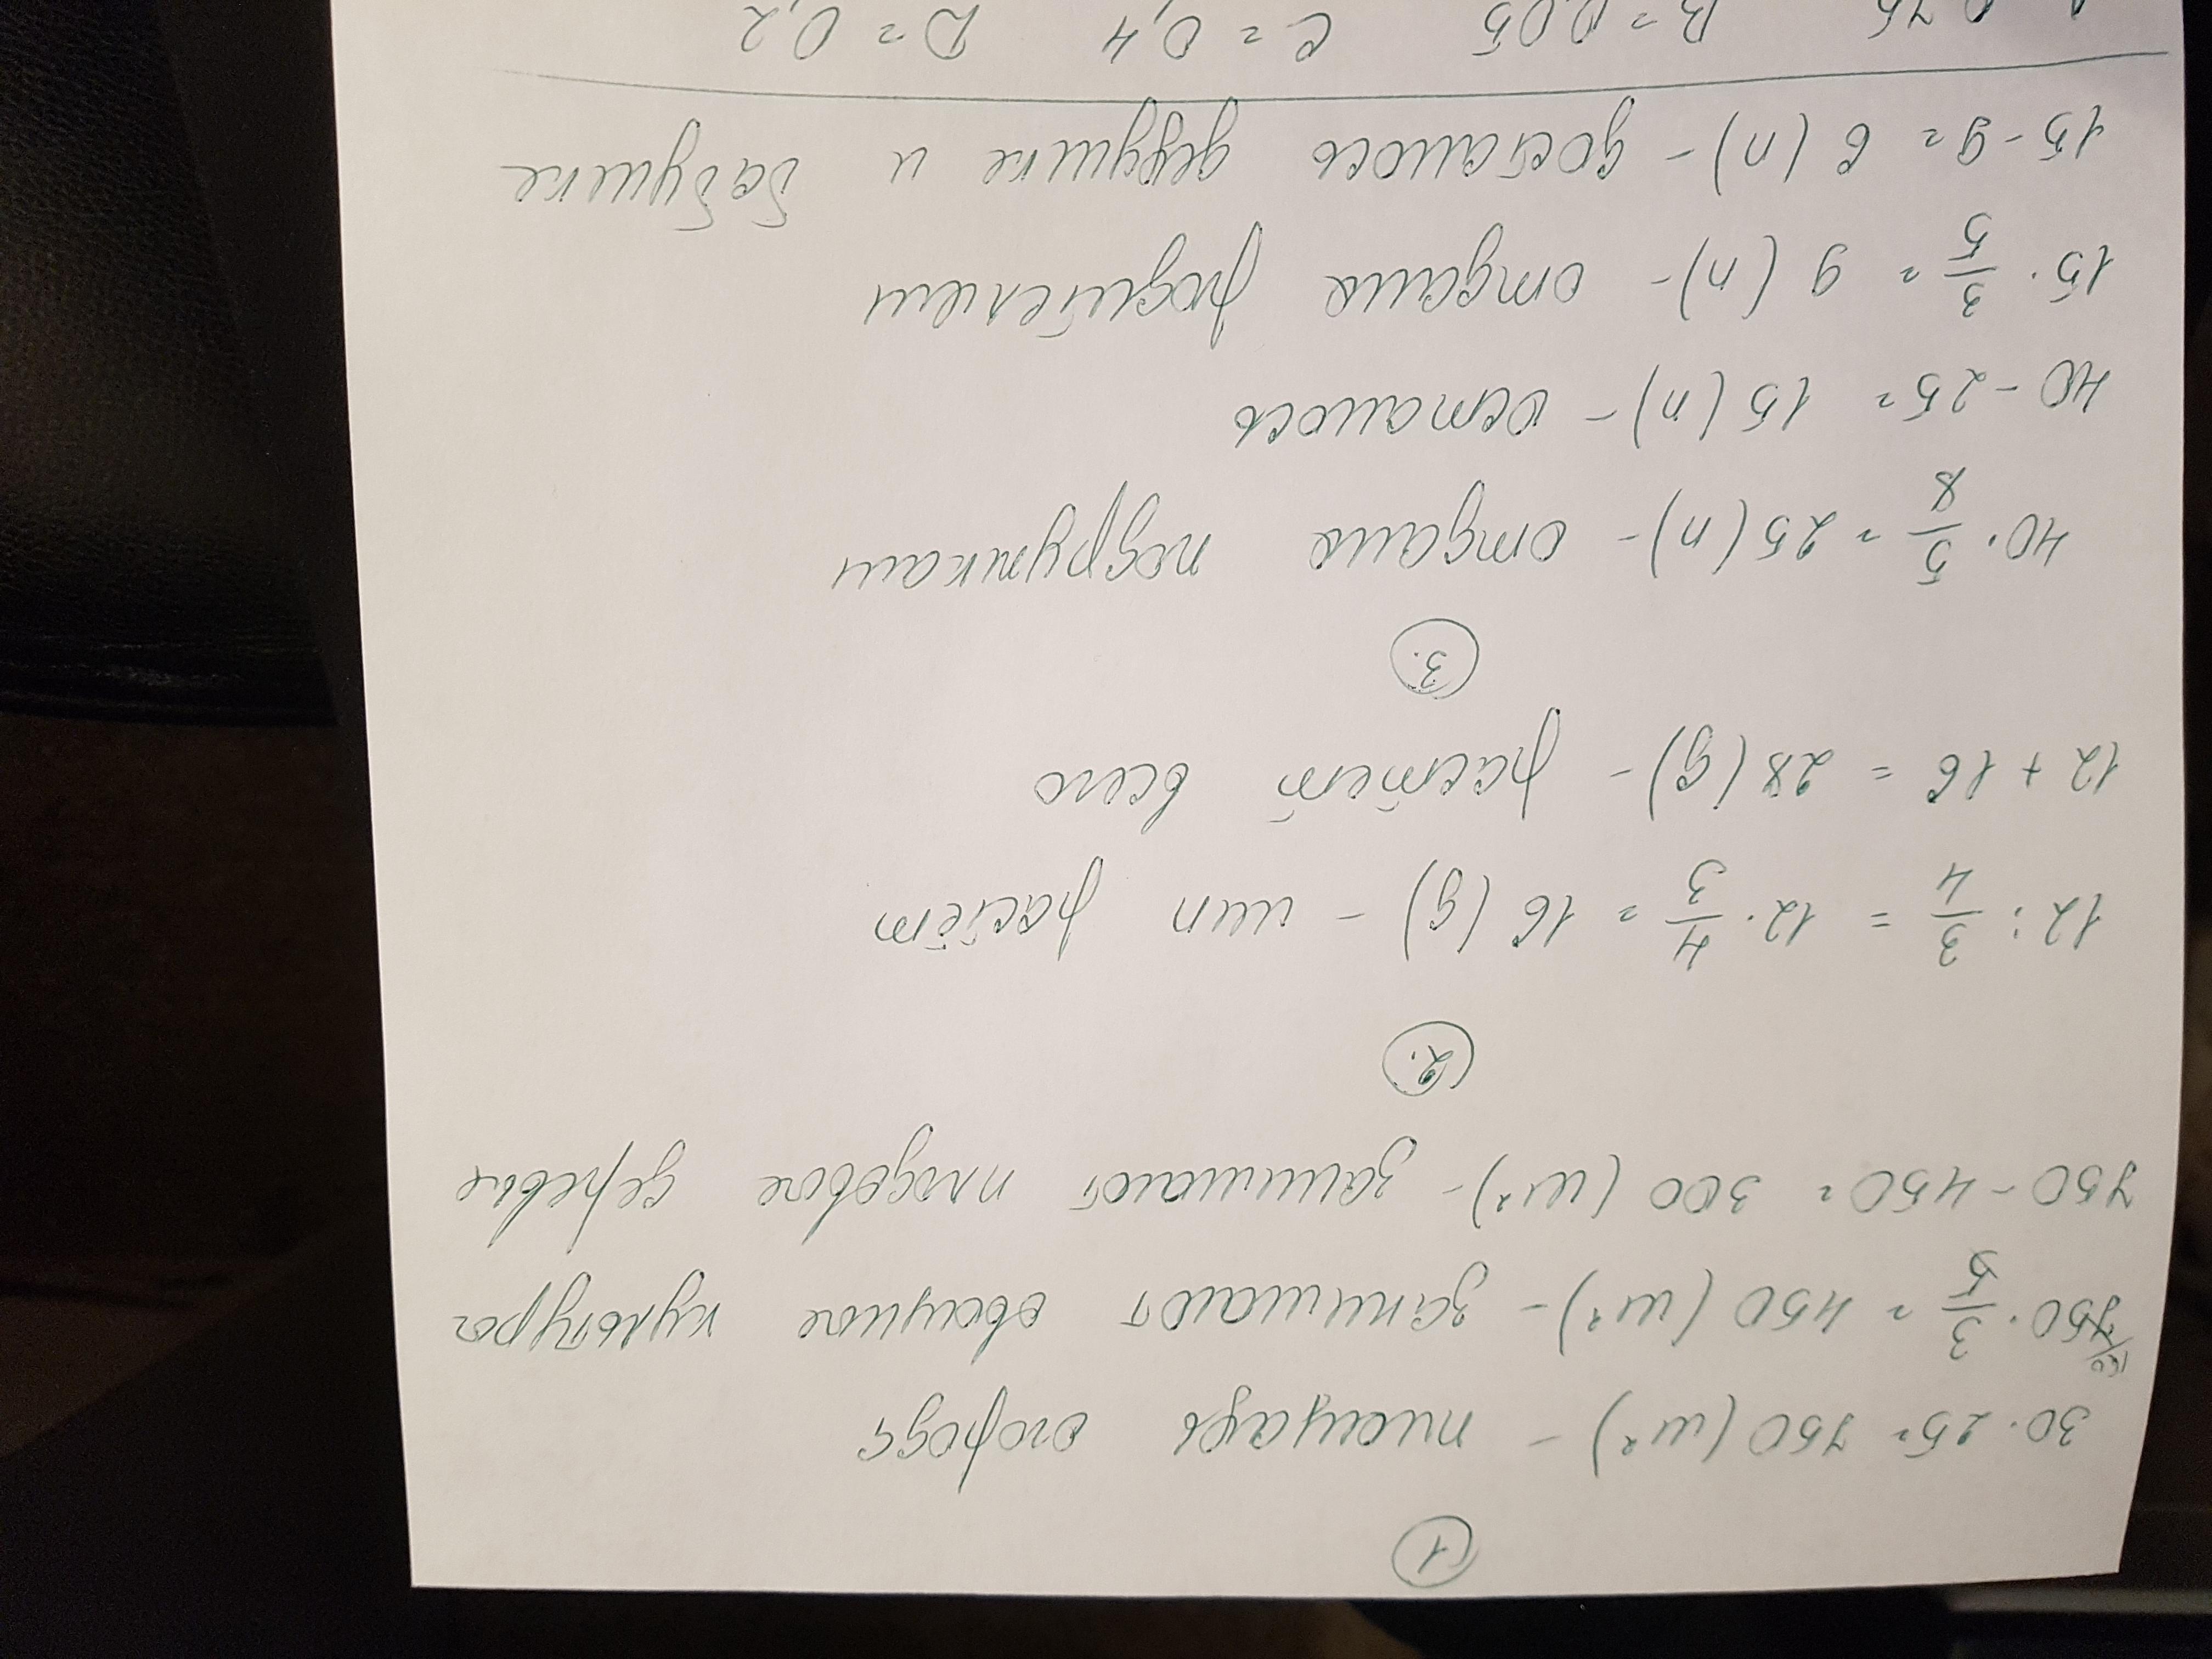 1
30 · 25 = 750 (м²) - площадь огорода
750 · 3/5 = 450 (м²) - занимают овощные культуры
750 - 450 = 300 (м²) - занимают плодовые деревья
2.
12 : 3/4 = 12 · 4/3 = 16 (д) - лип растёт
12 + 16 = 28 (д) - растёт всего
3.
40 · 5/8 = 25 (п) - отдала подружкам
40 - 25 = 15 (п) - осталось
15 · 3/5 = 9 (п) - отдала родителям
15 - 9 = 6 (п) - досталось дедушке и бабушке
0,75 B = 0,05 C = 0,4 D = 0,2